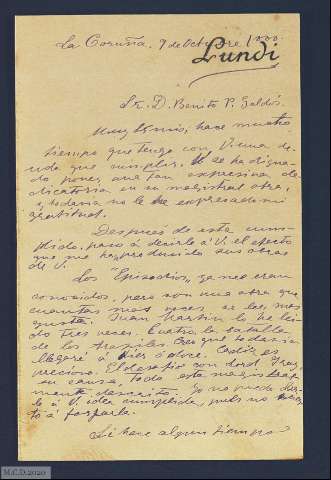 La Coruña, 9 de Octubre 1900.
Lundi
Sr. D. Benito P. Galdós.
Muy Sr mio; hace mucho
tiempo que tengo con V. una de
uda que cumplir. Se ha digna
do poner una tan expresiva de
dicatoria en su magistral obra,
y todavia no le he expresado mi
gratitud.
Despues de este cum
plido, paso á decirle á V. el efecto
que me ha producido sus obras
de V.
Los "Episodios", ya me eran
conocidos, pero son una obra que
cuantas mas veces se lee, mas
gusta. Juan Martin lo he lei
do tres veces. Cuatro la batalla
de los Arapiles. Creo que todavia
llegaré á diez ó doce. Cadiz es
precioso. El desafio con Lord Gray,
su causa, todo esta magistral
mente descrito. Yo no puedo dar
le á V. idea cumplida, pues no
Si hace algun tiempo
M.C.D. 2020